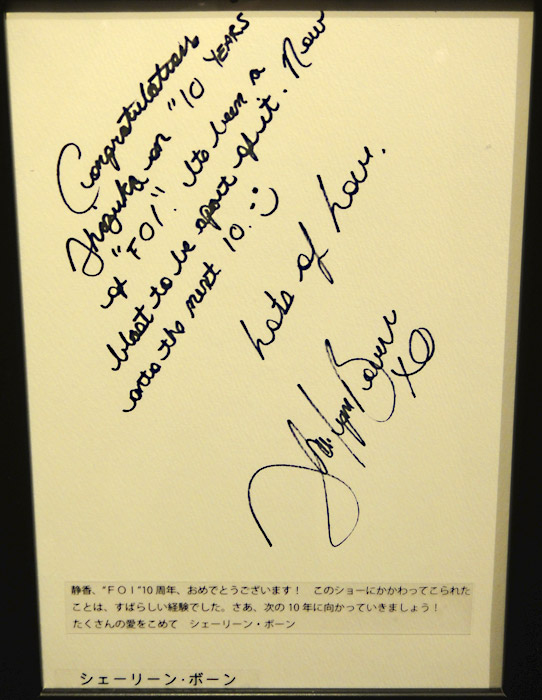 Congratulations
Shizuka on "10 YEARS
of "FOI". Its been a
blast to be apart of it. Now
onto the next 10. :)
Lots of Love.
Sherilyn Bourne XO
静香、"ＦＯＩ"10周年、おめでとうございます！　このショーにかかわってこられた
ことは、すばらしい経験でした。さあ、次の10年に向かっていきましょう！
たくさんの愛をこめて　シェーリーン・ボーン
シェーリーン・ボーン